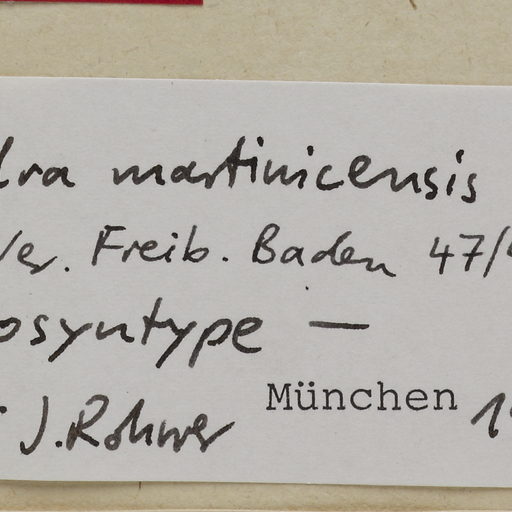 martinicensis
Ver. Freib. Baden 47/
osyntype —
J. Rohwer München 1